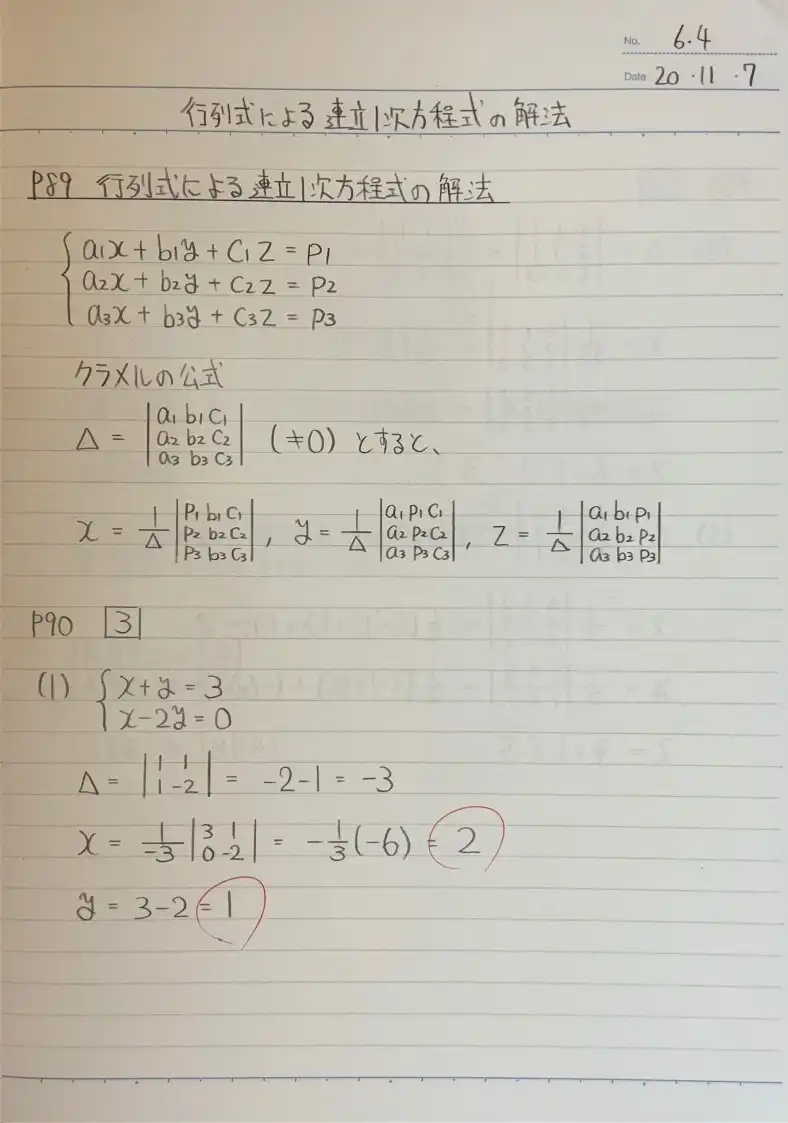 No. 6.4
Date 20・11・7
行列式による連立1次方程式の解法
P89 行列式による連立1次方程式の解法
a1x + b1y + c1z = p1
a2x + b2y + c2z = p2
a3x + b3y + c3z = p3
クラメルの公式
Δ = |a1 b1 c1 / a2 b2 c2 / a3 b3 c3| (≠0) とすると、
x = 1/Δ |p1 b1 c1 / p2 b2 c2 / p3 b3 c3| , y = 1/Δ |a1 p1 c1 / a2 p2 c2 / a3 p3 c3| , z = 1/Δ |a1 b1 p1 / a2 b2 p2 / a3 b3 p3|
P90 3
(1) { x+y = 3
x-2y = 0
Δ = |1 1 / 1 -2| = -2-1 = -3
x = 1/-3 |3 1 / 0 -2| = -1/3(-6) = 2
y = 3-2 = 1